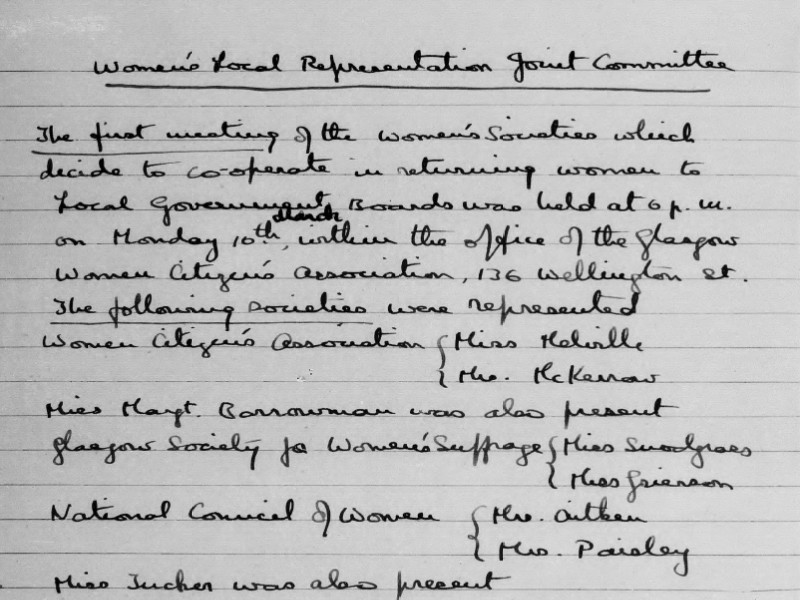 Women's Local Representation Joint Committee
The first meeting of the Women's Societies which
decide to co-operate in returning women to
Local Government Boards was held at 6 p.m.
on Monday 10th, March within the office of the Glasgow
Women Citizen's Association, 136 Wellington St.
The following societies were represented
Women Citizen's Association { Miss Melville
{ Mrs. McKerrow
Miss Margt. Barrowman was also present
Glasgow Society for Women's Suffrage { Miss Snodgrass
{ Miss Grierson
National Council of Women { Mrs. Aitken
{ Mrs. Paisley
Miss Tucker was also present